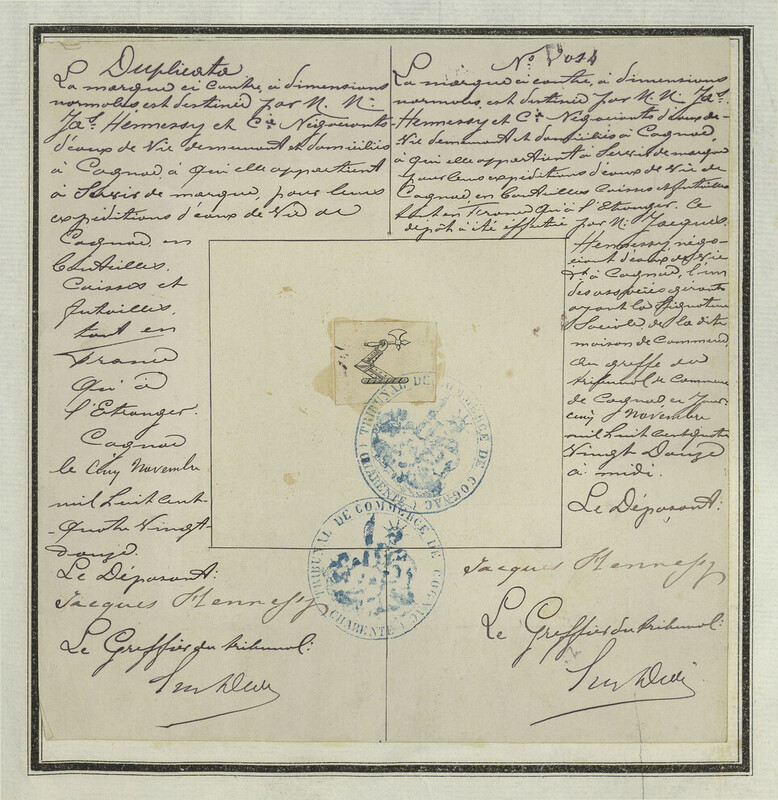 Duplicata
La marque ci contre, à dimensions
normales est destinée par M. M.
Jas. Hennessy et Cie. Négociants
d'eaux de Vie demeurant et domiciliés
à Cognac, à qui elle appartient
à Servir de marque, pour leurs
expéditions d'eaux de Vie de
Cognac, en
bouteilles,
Caisses et
futailles,
tant en
France
qu'à
l'Etranger.
Cognac
le Cinq Novembre
mil huit cent-
-quatre Vingt-
douze.
Le Déposant:
Jacques Hennessy
Le Greffier du tribunal:
No
La marque ci contre, à dimensions
normales, est destinée par M. M. Jas.
Hennessy et Cie. Négociants d'eaux-de-
Vie demeurant et domiciliés à Cognac,
à qui elle appartient à Servir de marque
pour leurs expéditions d'eaux de Vie de
Cognac en bouteilles Caisses et futailles
tant en France qu'à l'Etranger. Ce
dépôt a été effectué par M. Jacques
Hennessy négo-
ciant d'eaux de Vie
à Cognac, l'un
des associés gérants
ayant la Signature
Sociale, de la dite
maison de Commerce,
au greffe du
tribunal de Commerce
de Cognac ce Jour
cinq Novembre
mil huit cent quatre
Vingt Douze
à midi.
Le Déposant:
Jacques Hennessy
Le Greffier du tribunal:
TRIBUNAL DE COMMERCE DE COGNAC
(CHARENTE)
TRIBUNAL DE COMMERCE DE COGNAC
(CHARENTE)